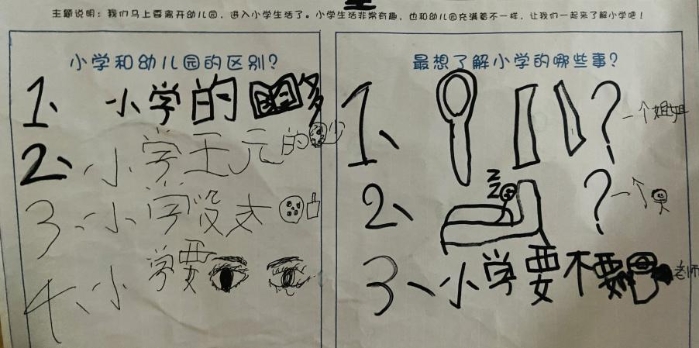 主题说明：我们马上要离开幼儿园，进入小学生活了。小学生活非常有趣，也和幼儿园充满着不一样，让我们一起来了解小学吧！
小学和幼儿园的区别？
1、小学的多
2、小学王元的少
3、小学没太
4、小学要
最想了解小学的哪些事？
1、？一个姐姐
2、zz？一个
3、小学要不要老师